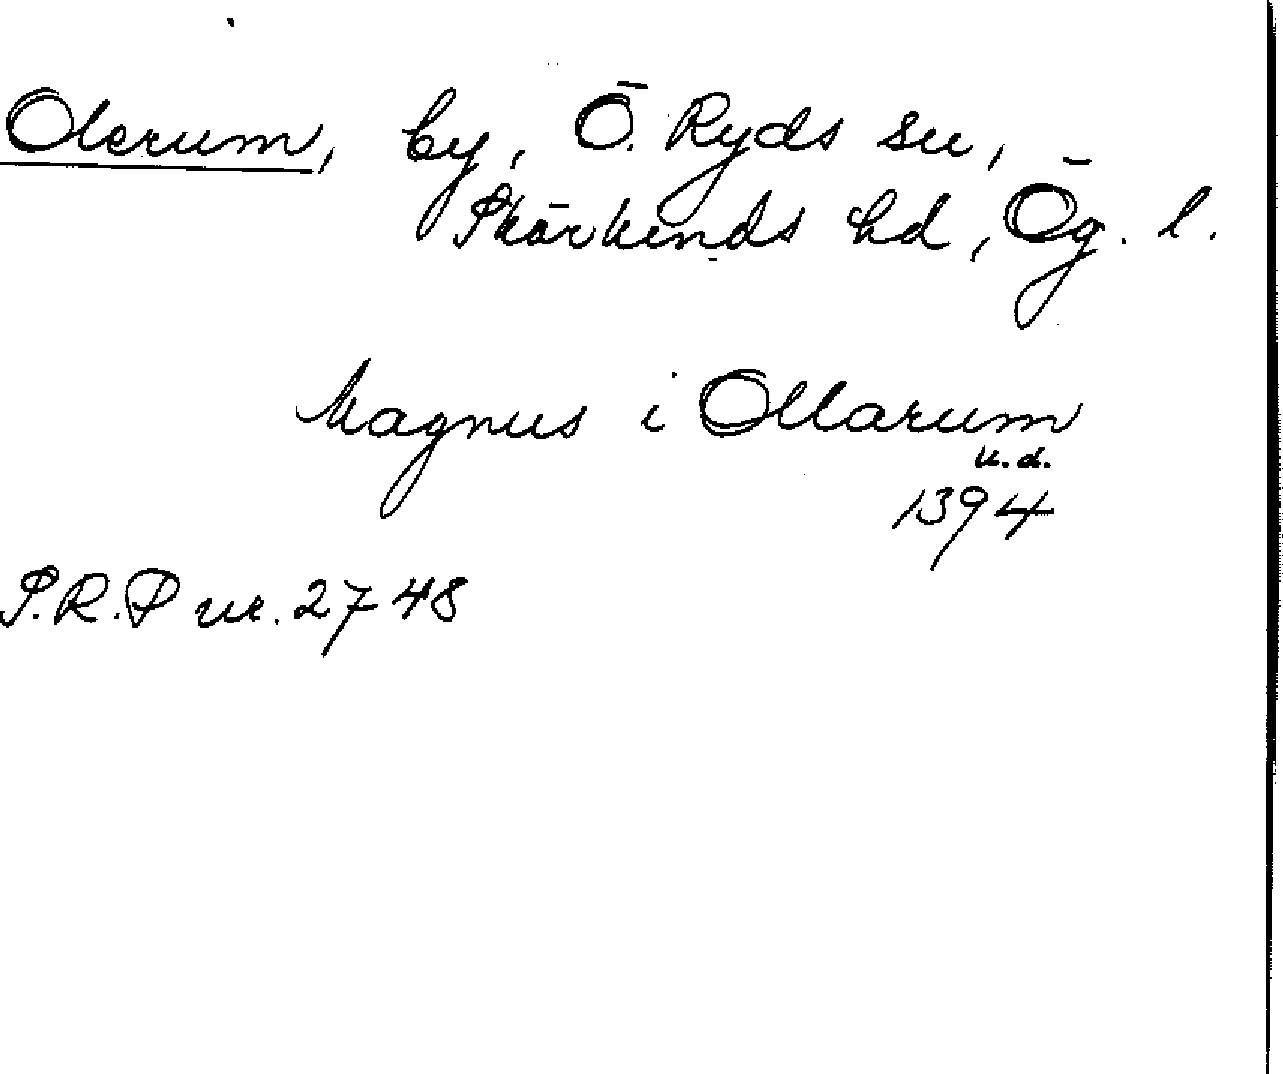 Olerum, by, Ö. Ryds sn,
Skärkinds hd, Ög. l.
Magnus i Ollarum
u.d.
1394
S.R.P nr. 2748